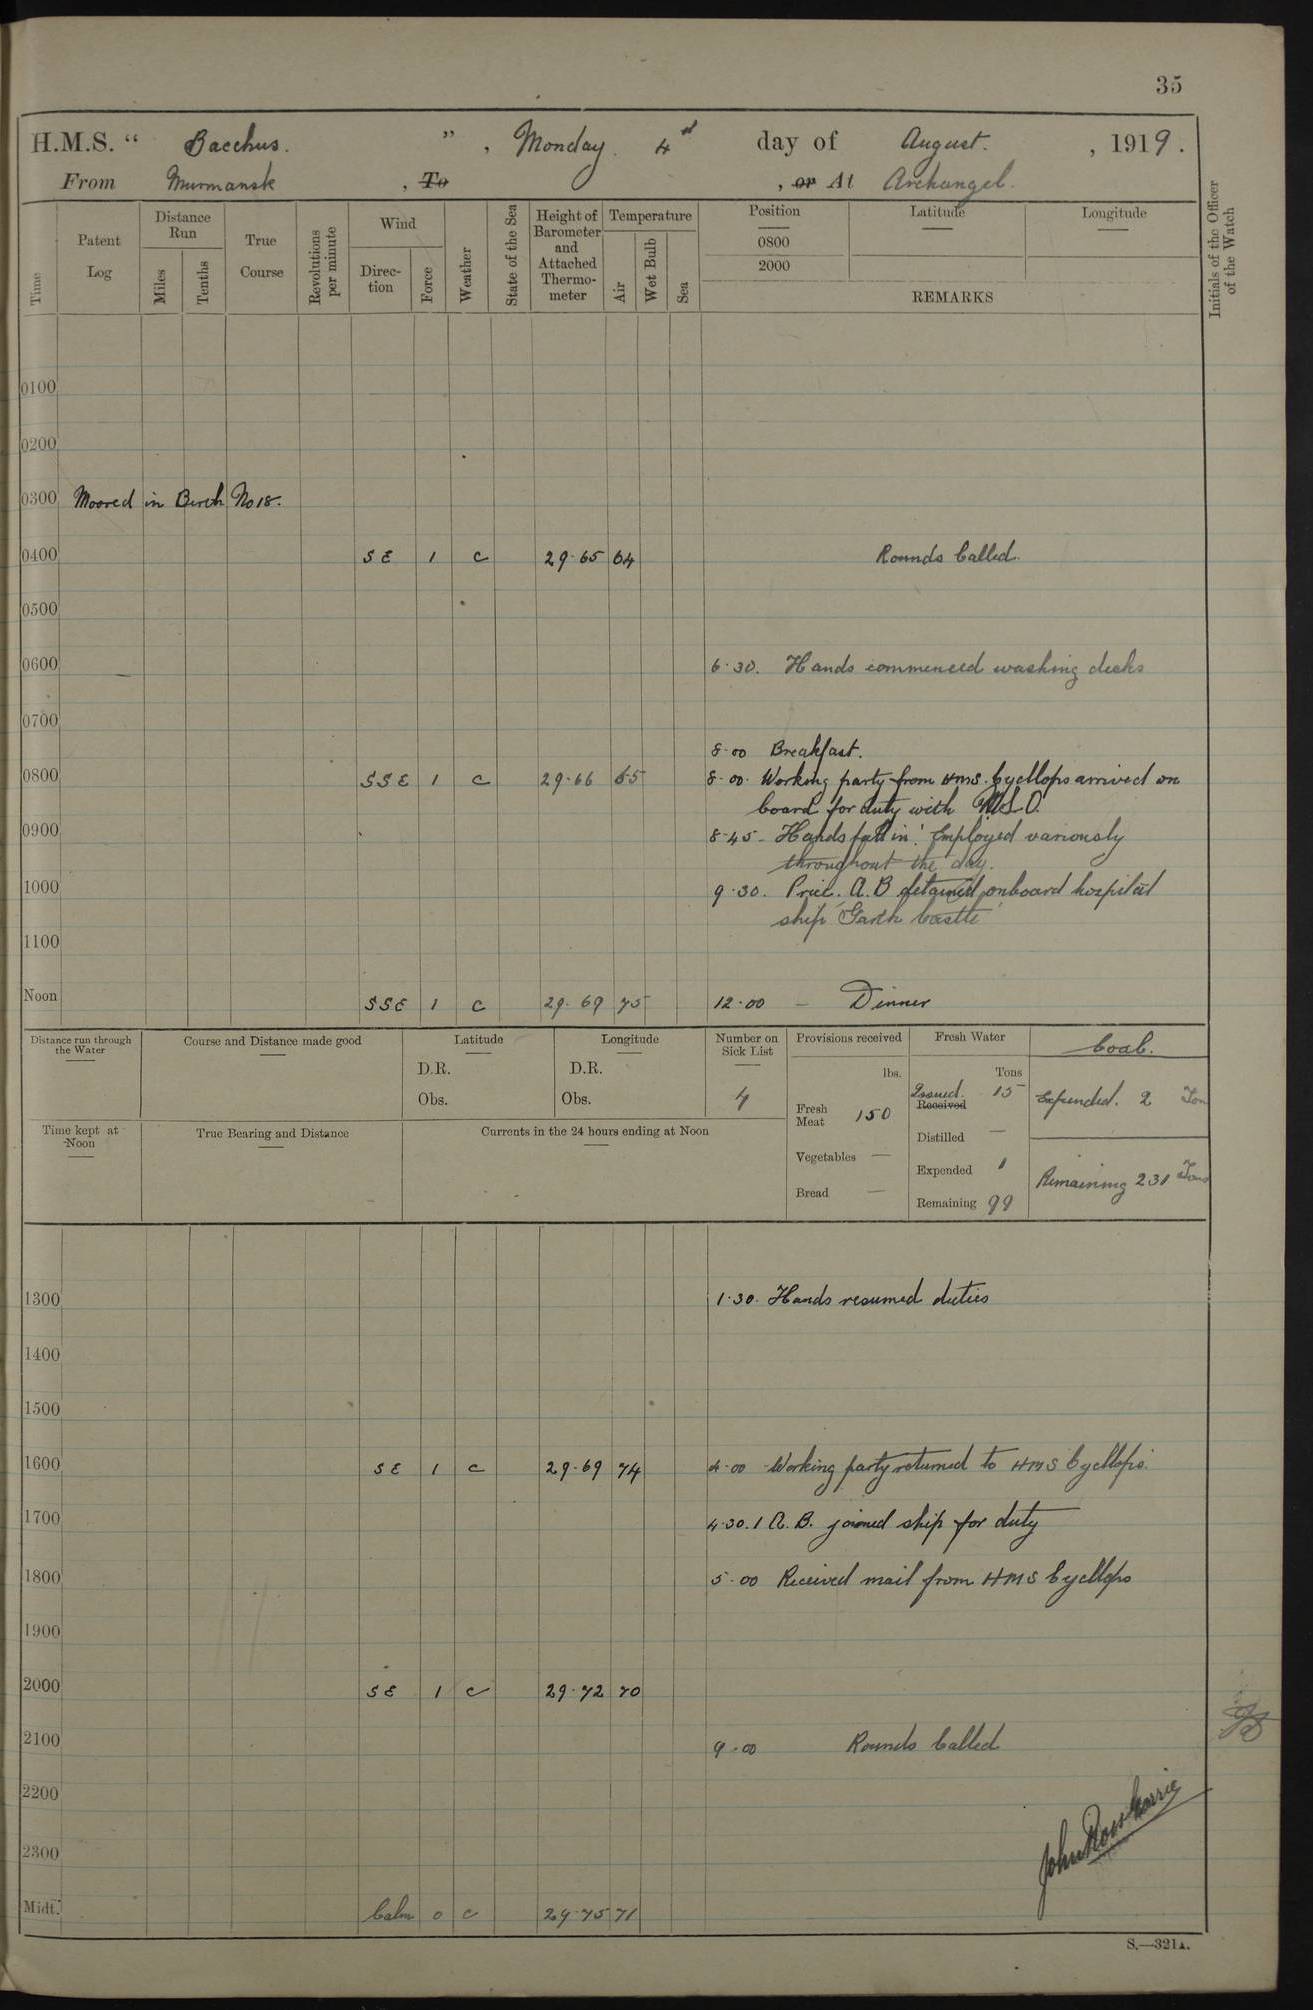 35
H.M.S. “ Bacchus. ”, Monday 4th day of August. , 1919.
From Murmansk , To , or At Archangel.
Time
Patent Log
Distance Run
Miles
Tenths
True Course
Revolutions per minute
Wind
Direc-tion
Force
Weather
State of the Sea
Height of Barometer and Attached Thermo-meter
Temperature
Air
Wet Bulb
Sea
Position
0800
2000
Latitude
Longitude
REMARKS
Initials of the Officer of the Watch
0100
0200
0300 Moored in Berth No 18.
0400 SE 1 c 29.65 64 Rounds Called.
0500
0600 6.30. Hands commenced washing decks
0700
8.00 Breakfast.
0800 SSE 1 c 29.66 65 8.00. Working party from HMS. Cycllops arrived on
board for duty with
0900 8.45- Hands fall in. Employed variously
throughout the day.
1000 9.30. A.B detained onboard hospital
ship 'Garth Castle'
1100
Noon SSE 1 c 29.69 75 12.00 – Dinner
Distance run through the Water
Course and Distance made good
Latitude
D.R.
Obs.
Longitude
D.R.
Obs.
Number on Sick List
4
Provisions received
lbs.
Fresh Meat 150
Vegetables —
Bread —
Fresh Water
Tons
Issued. 15
Received
Distilled —
Expended 1
Remaining 99
Coal.
Expended. 2 Ton
Remaining 231 Tons
Time kept at Noon
True Bearing and Distance
Currents in the 24 hours ending at Noon
1300 1.30. Hands resumed duties
1400
1500
1600 SE 1 c 29.69 74 4.00 Working party returned to HMS Cycllops.
1700 4.30. 1 A.B. joined ship for duty
1800 5.00 Received mail from HMS Cycllops
1900
2000 SE 1 c 29.72 70
2100 9.00 Rounds Called
2200
2300
John Ross
Midt. Calm 0 c 29.75 71
S.—321A.